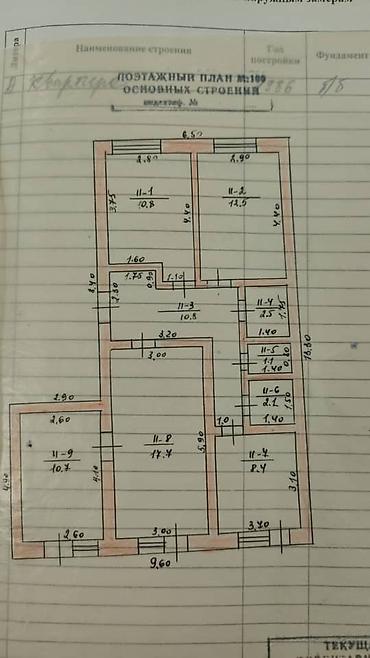 наружным замерам
Литера
Наименование строения
Год постройки
Фундамент
ПОЭТАЖНЫЙ ПЛАН №:100
ОСНОВНЫХ СТРОЕНИЙ
индентиф. №
б/б
6.50
2.80
2.90
II-1
10.8
3.75
4.40
II-2
12.5
4.40
1.60
1.75
0.90
1.10
2.40
2.80
II-3
10.8
II-4
2.5
1.75
1.40
3.20
3.00
II-5
1.1
0.80
1.40
13.30
II-6
2.1
1.50
1.40
2.90
2.60
1.0
II-8
17.7
5.90
II-7
8.4
3.10
4.90
II-9
10.7
4.10
2.60
3.00
3.70
9.60
ТЕКУЩА